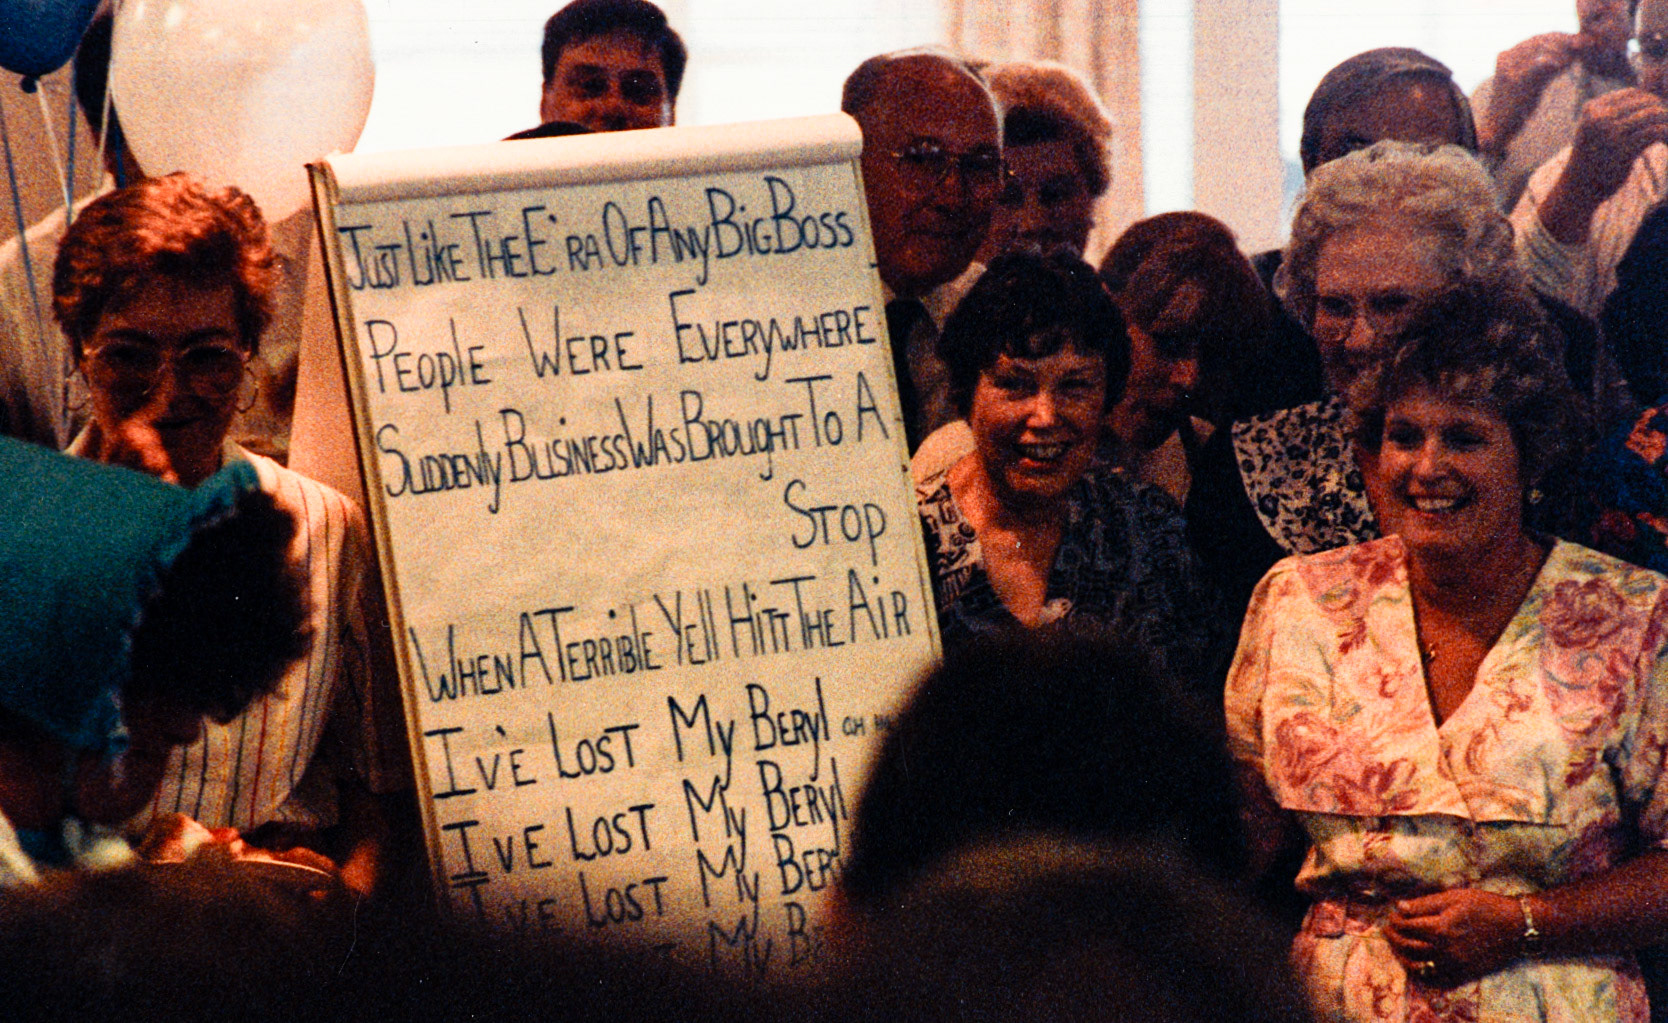 JUST LIKE THE E'RA OF ANY BIG BOSS
PEOPLE WERE EVERYWHERE
SUDDENLY BUSINESS WAS BROUGHT TO A
STOP
WHEN A TERRIBLE YELL HITT THE AIR
I'VE LOST MY BERYL OH
I'VE LOST MY BERYL
I'VE LOST MY
MY